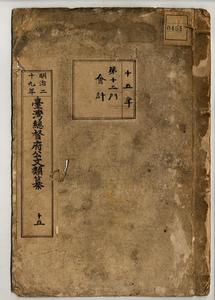 十五年
第十二門
會計
明治二十九年
臺灣總督府公文類纂
十五